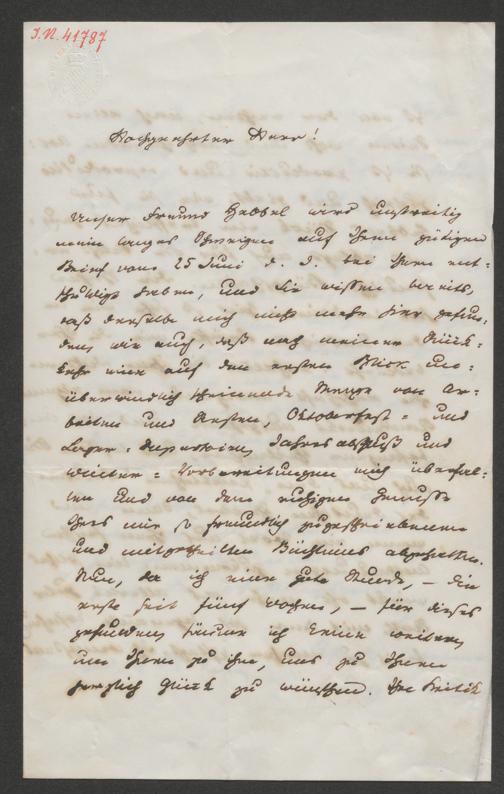 I.N. 41787
Hochgeehrter Herr!
Unser Freund Hebbel wird unstreitig
mein langes Schweigen auf Ihren gütigen
Brief vom 25 Juni d. J. bei Ihnen ent-
schuldigt haben, und Sie wissen bereits,
daß derselbe mich nicht mehr hier gefun-
den, wie auch, daß nach meiner Rück-
kehr eine auf den ersten Blick un-
überwindlich scheinende Menge von Ar-
beiten und Akten, Oktoberfest- und
Lager-, Jahresabschluß und
Winter-Vorbereitungen mich überfal-
len und von dem ruhigen Genusse
Ihres mir so freundlich zugeschriebenen
und mitgetheilten Büchleins abgehalten.
Nun, da ich eine gute Stunde, – die
erste seit fünf Wochen, – für dieses
gefunden, säume ich keinen weiteren
um Ihnen zu ihm, uns zu Ihnen
herzlich Glück zu wünschen. Ihre Kritik